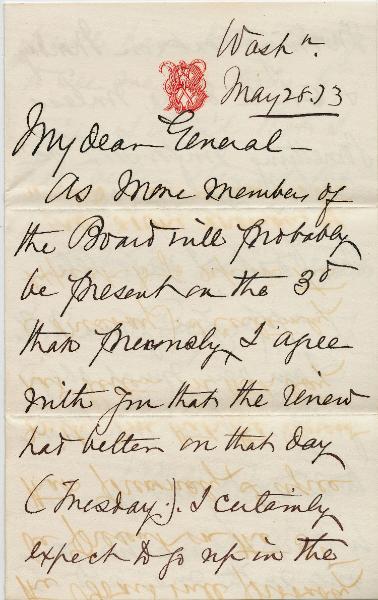 Washn.
May 28.73
My dear General —
As more members of
the Board will probably
be present on the 3d
than previously, I agree
with you that the review
had better on that day
(Tuesday). I certainly
expect to go up in the